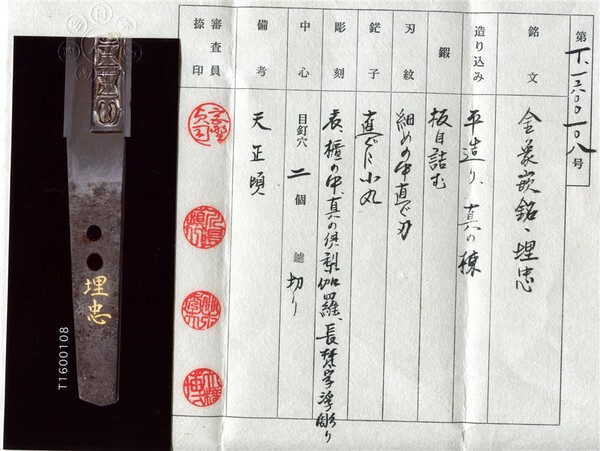 第T一六〇〇一〇八号
銘文 金象嵌銘、埋忠
造り込み 平造り、真の棟
鍛 板目詰む
刃紋 細めの中直ぐ刃
鋩子 直ぐに小丸
彫刻 表、櫃の中、真の倶梨伽羅、長梵字浮彫り
中心 目釘穴 二個 鑢 切り
備考 天正頃
審査員捺印
埋忠
T1600108